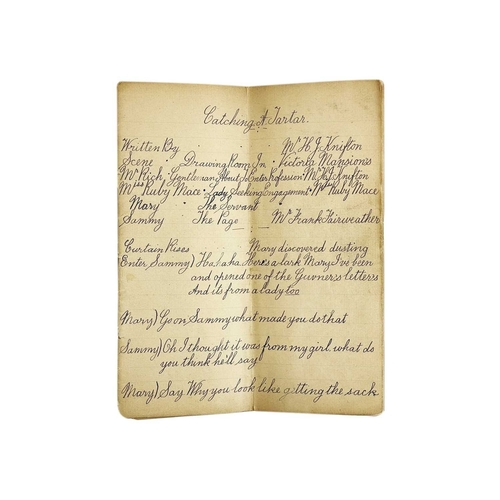 Catching A Tartar.
Written By Mr H. J. Knifton
Scene · Drawing Room In · Victoria Mansions
Mr Rich, Gentleman About To Enter Profession · Mr H.J. Knifton
Miss Ruby Mace · Lady Seeking Engagement · Miss Ruby Mace
Mary The Servant
Sammy The Page Mr Frank Fairweather
Curtain Rises Mary discovered dusting
Enter, Sammy) Ha ha ha Here's a lark Mary I've been
and opened one of the Guvner's letters
And its from a lady too
Mary) Go on Sammy what made you do that
Sammy) Oh I thought it was from my girl. what do
you think he'll say
Mary) Say Why you look like getting the sack